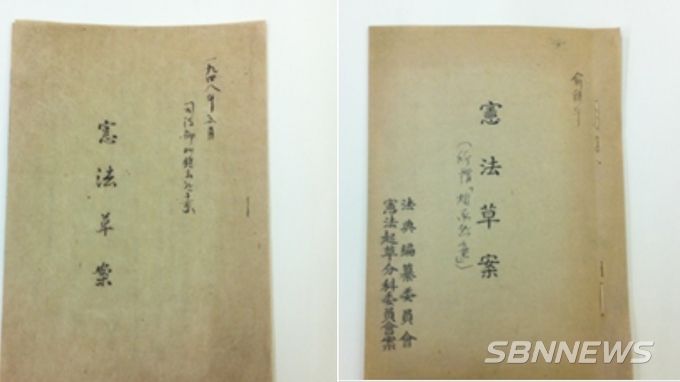 一九四八年五月
司法部 草案
憲法草案
俞鎭午
憲法草案
法典編纂委員會
憲法起草分科委員會案
SBNNEWS